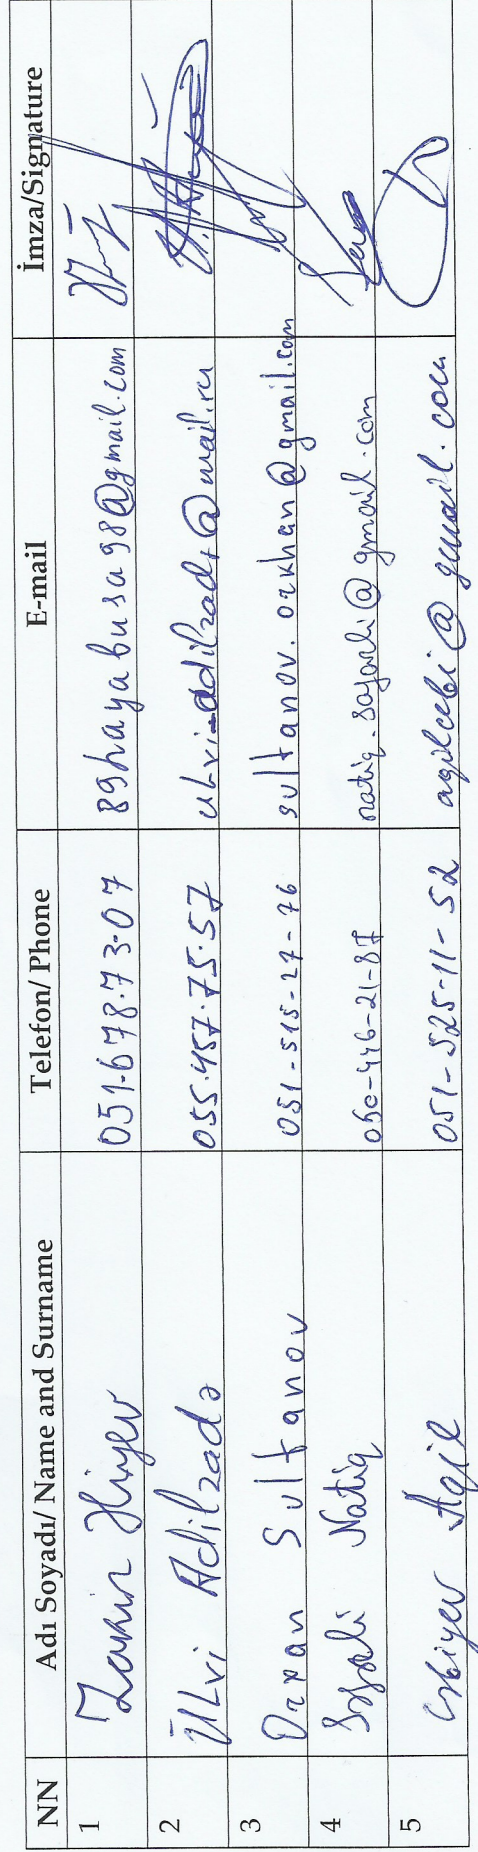 NN Adı Soyadı/ Name and Surname Telefon/ Phone E-mail İmza/Signature
1 Zamir 051.678.73.07 89hayabusa98@gmail.com
2 Ülvi Adilzadə 055.457.75.57 ulvi-adilzada@mail.ru
3 Orxan Sultanov 051-515-27-76 sultanov.orkhan@gmail.com
4 Natiq 050-446-21-87
5 Aqil 051-525-11-52 agilcebi@gmail.com